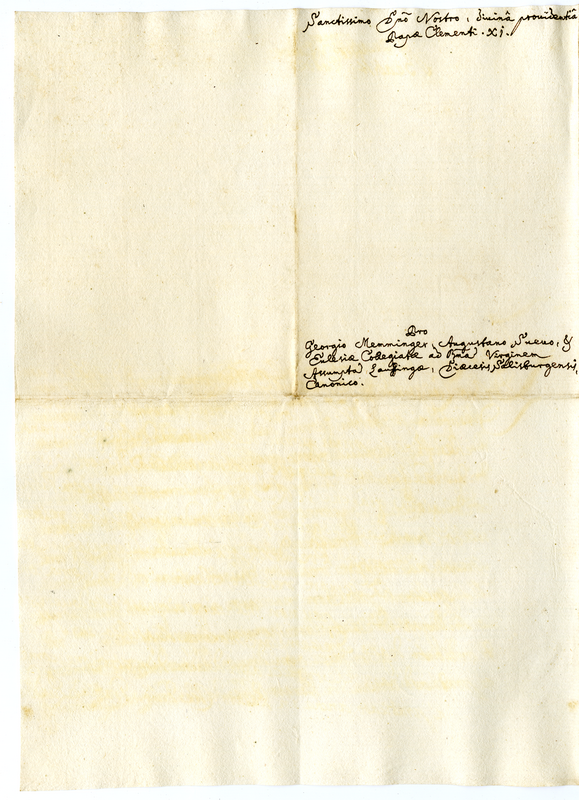 Sanctissimo Dño Nostro, divinâ providentiâ
Papæ Clementi. XI.
Pro
Georgio Memminger, Augustano, Suevo, &
Eclesiæ Collegiatæ ad Bmã Virginem
Assumptã Lauffingæ, Diæcesis Salisburgensis,
Canonico.